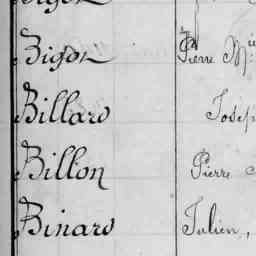 Bigon
Bigon Pierre M
Billard Josep
Billon Pierre
Binard Julien,